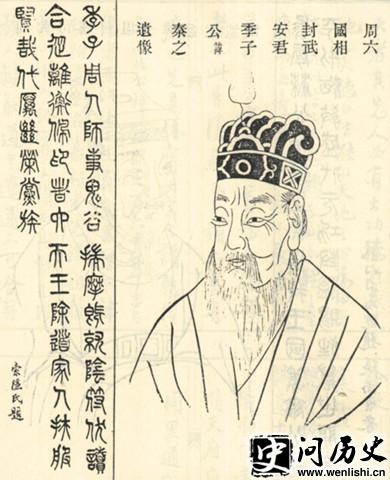 周六
國相
封武
安君
季子
公諱
秦之
遺像
季子周人師事鬼谷揣摩既就陰符伏讀
合從離衡佩印者六天王除道家人扶服
賢哉代厲繼榮黨族
索隱氏題
史
问历史
www.wenlishi.cn